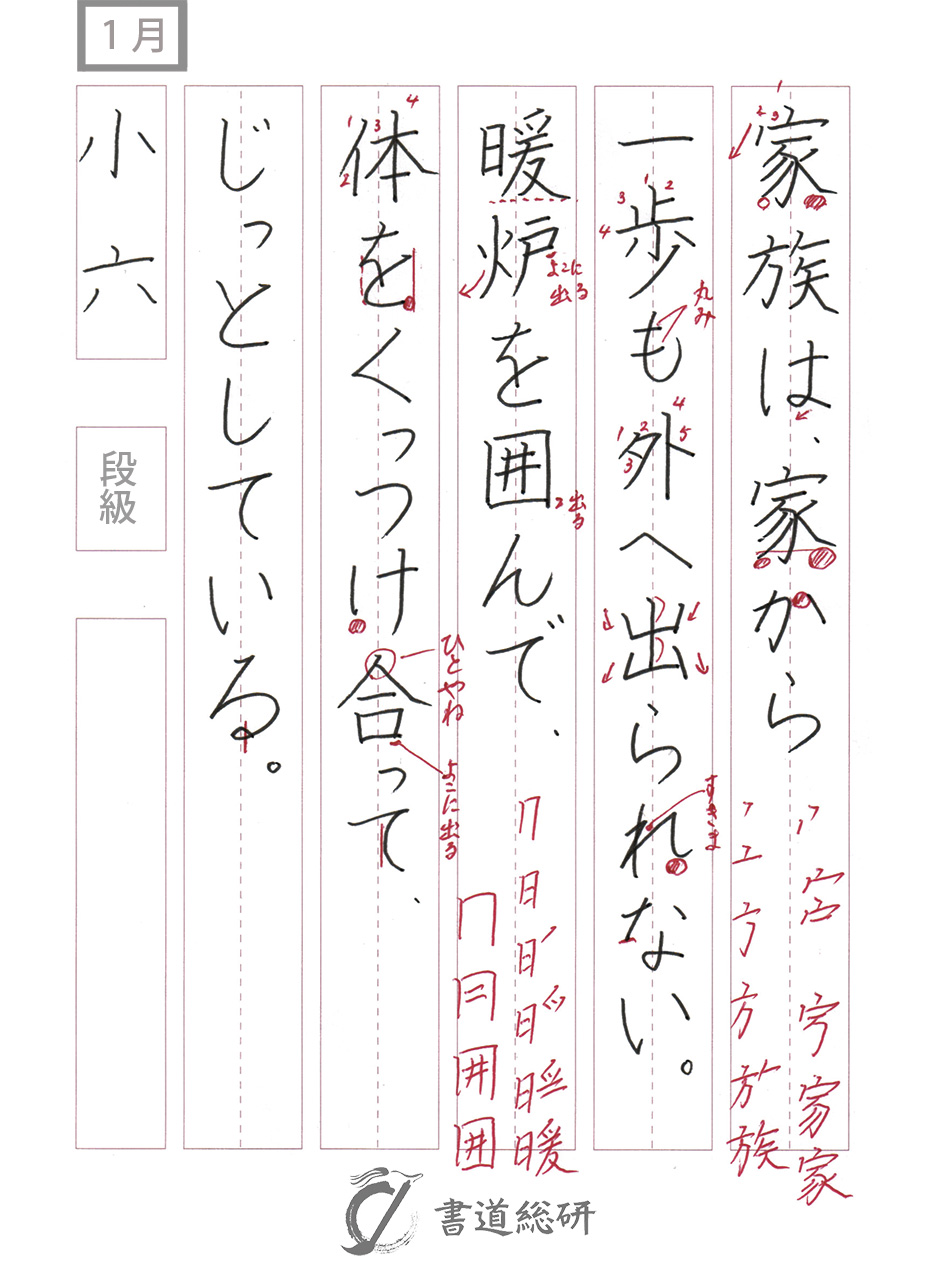 1月
家族は、家から
一歩も外へ出られない。
暖炉を囲んで、
体をくっつけ合って、
じっとしている。
小六
段級
1
2 3
1 2
3
4
丸み
4
1 2 5
3
すきま
よこに出る
出る
4
1 3
2
ひとやね
よこに出る
宀 家 家
方 族
日 暖
冂 囲 囲
書道総研